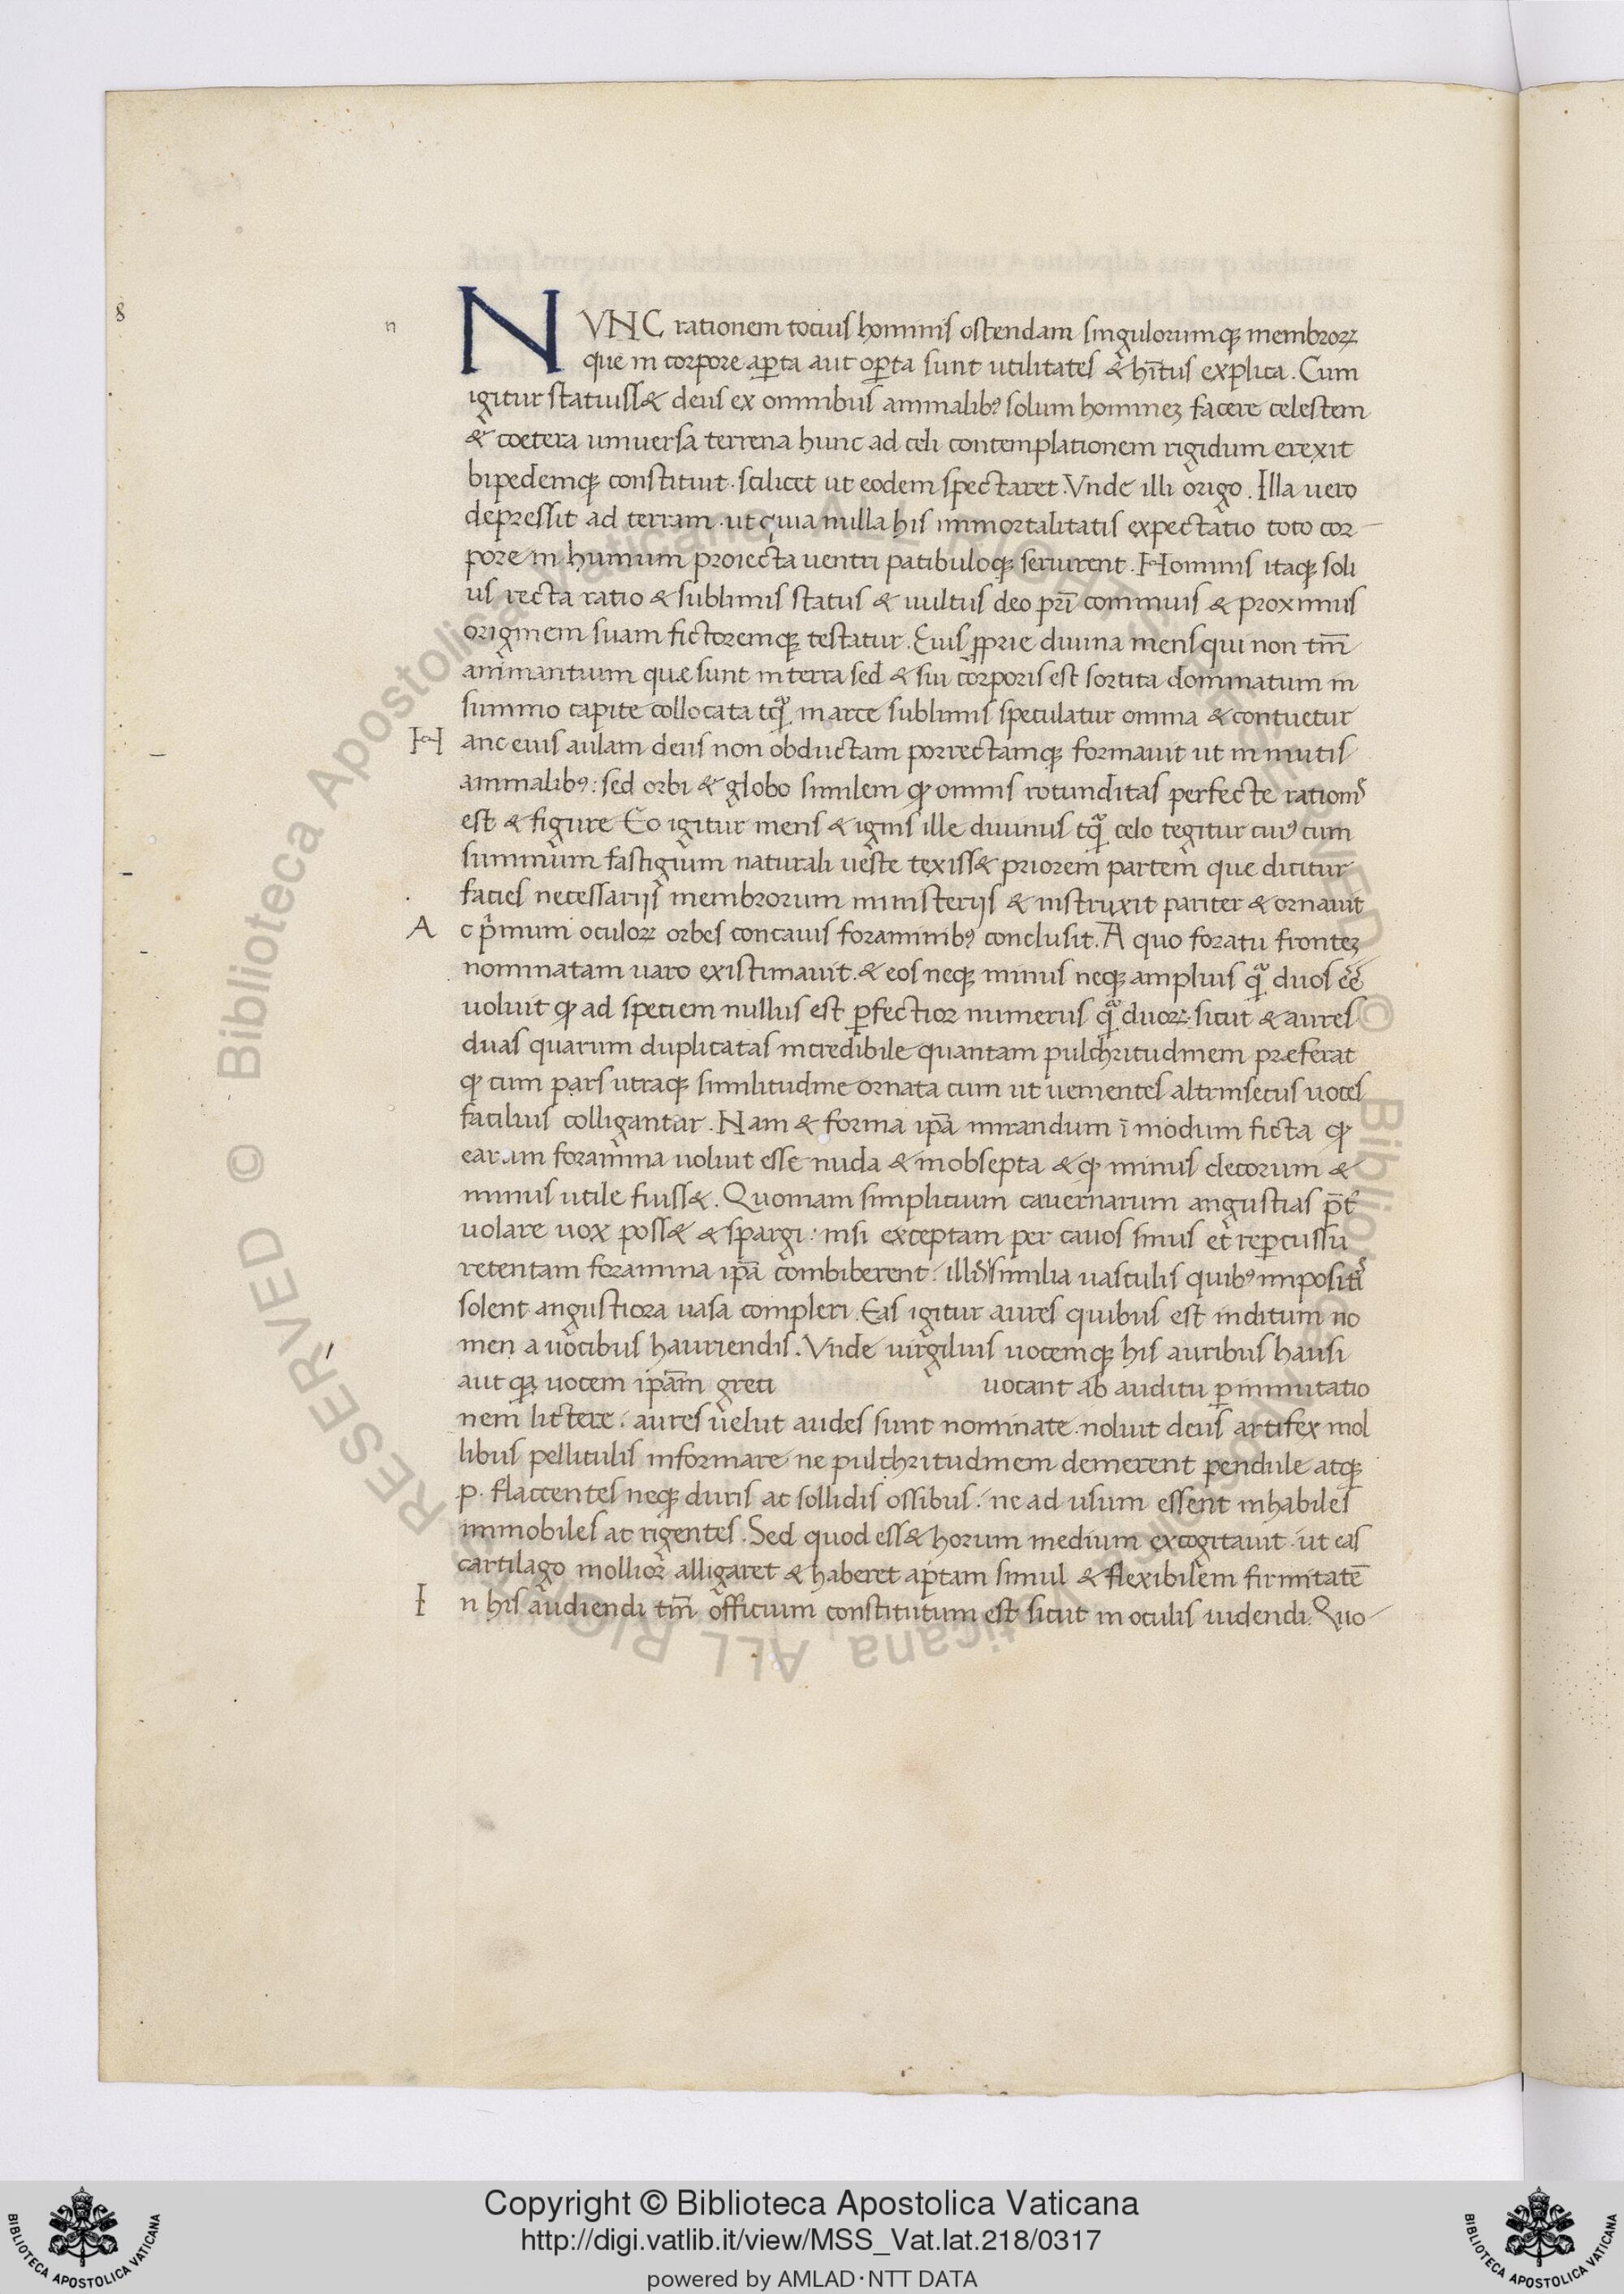 8
n
NVNC rationem tocius hominis ostendam singulorumq; membroꝝ
que in corpore aꝑta aut oꝑta sunt utilitates & hītus explica. Cum
igitur statuiss& deus ex omnibus animalibꝰ solum hominez facere celestem
& coetera uniuersa terrena hunc ad celi contemplationem rigidum erexit
bipedemq; constituit. scilicet ut eodem spectaret. Vnde illi origo. Illa uero
depressit ad terram. ut quia nulla his immortalitatis expectatio toto cor-
pore in humum proiecta uentri patibuloq; seruirent. Hominis itaq; soli
us recta ratio & sublimis status & uultus deo pri̅ commuis & proximus
originem suam fictoremq; testatur. Eius ꝓprie diuina mens qui non tm̅
animantium quæ sunt in terra sed & sui corporis est sortita dominatum in
summo capite collocata tq̃ in arce sublimis speculatur omnia & contuetur
Hanc eius aulam deus non obductam porrectamq; formauit ut in mutis
animalibꝰ: sed orbi & globo similem ꝙ omnis rotunditas perfecte rationis
est & figure Eo igitur mens & ignis ille diuinus tq̃ celo tegitur cuiꝰ cum
summum fastigium naturali ueste texiss& priorem partem que dicitur
facies necessarijs membrorum ministerijs & instruxit pariter & ornauit
Ac p̃mum oculoꝝ orbes concauis foraminibꝰ conclusit. A quo foratu frontez
nominatam uaro existimauit. & eos neq; minus neq; amplius q̃ duos ēē
uoluit ꝙ ad speciem nullus est ꝑfectior numerus q̃ duoꝝ: sicut & aures
duas quarum duplicatas incredibile quantam pulchritudinem præferat
ꝙ cum pars utraq; similitudine ornata cum ut uementes altrinsecus uoces
facilius colligantur. Nam & forma ipā mirandum ī modum ficta ꝙ
earum foramina uoluit esse nuda & inobsepta & ꝙ minus decorum &
minus utile fuiss&. Quoniam simplicium cauernarum angustias p̅t
uolare uox poss& & spargi: nisi exceptam per cauos sinus et reꝑcussu
retentam foramina ipā combiberent. illis similia uasculis quibꝰ impositis
solent angustiora uasa compleri. Eas igitur aures quibus est inditum no
men a uocibus hauriendis. Vnde uirgilius uocemq; his auribus hausi
aut qa uocem ipām greci uocant ab auditu ꝑ immutatio
nem littere. aures uelut audes sunt nominate. noluit deus artifex mol
libus pelliculis informare ne pulchritudinem demerent pendule atq;
p. flaccentes neq; duris ac sollidis ossibus. ne ad usum essent inhabiles
immobiles ac rigentes. Sed quod ess& horum medium excogitauit ut eas
cartilago mollior alligaret & haberet aptam simul & flexibilem firmitatē
In his audiendi tm̅ officium constitutum est sicut in oculis uidendi. Quo
© Biblioteca Apostolica Vaticana ALL RIGHTS RESERVED © Biblioteca Apostolica Vaticana ALL RIGHTS RESERVED
Copyright © Biblioteca Apostolica Vaticana
http://digi.vatlib.it/view/MSS_Vat.lat.218/0317
powered by AMLAD·NTT DATA
BIBLIOTECA APOSTOLICA VATICANA
BIBLIOTECA APOSTOLICA VATICANA